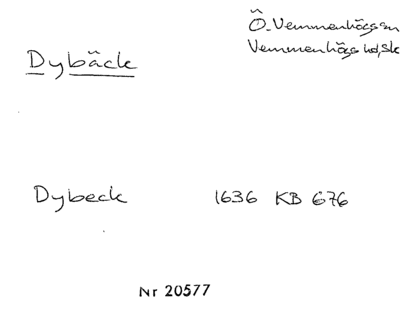 Ö. Vemmenhögs sn
Vemmenhögs hd, Sk
Dybäck
Dybeck 1636 KB 676
Nr 20577